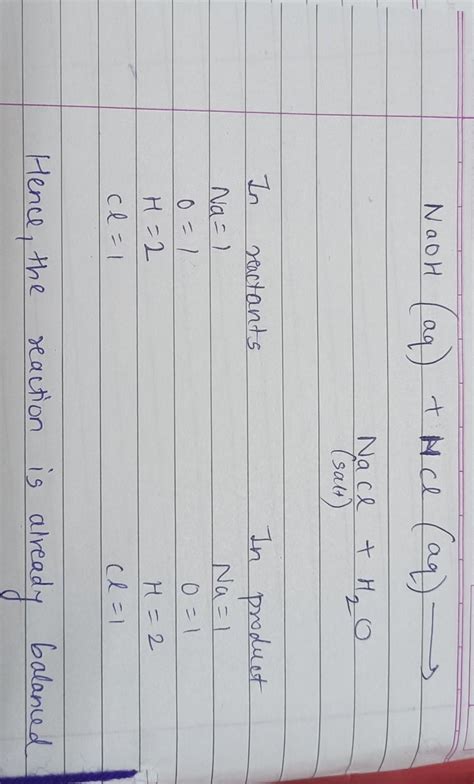 NaOH (aq) + HCl (aq) →
NaCl + H₂O
(salt)
In reactants In product
Na=1 Na=1
O=1 O=1
H=2 H=2
Cl=1 Cl=1
Hence, the reaction is already balanced